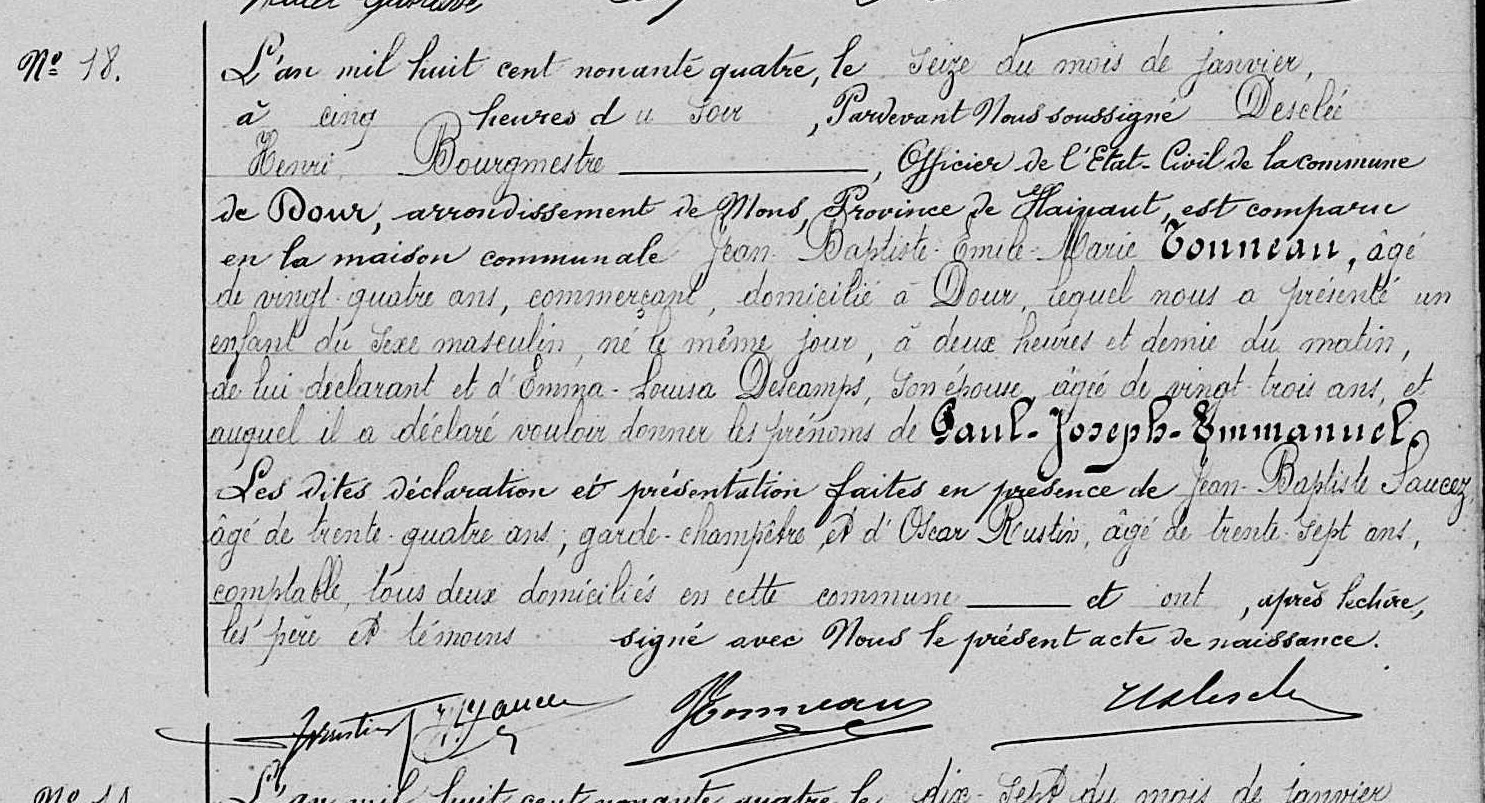 Nº 18.
L'an mil huit cent nonante quatre, le seize du mois de janvier,
à cinq heures du soir, Pardevant Nous soussigné Desclée
Henri, Bourgmestre, Officier de l'Etat-Civil de la commune
de Dour, arrondissement de Mons, Province de Hainaut, est comparu
en la maison communale Jean-Baptiste-Emile-Marie Tonneau, âgé
de vingt-quatre ans, commerçant, domicilié à Dour, lequel nous a présenté un
enfant du sexe masculin, né le même jour, à deux heures et demie du matin,
de lui déclarant et d'Emma-Louisa Descamps, son épouse, âgée de vingt-trois ans, et
auquel il a déclaré vouloir donner les prénoms de Paul-Joseph-Emmanuel.
Les dites déclaration et présentation faites en présence de Jean-Baptiste Saucez,
âgé de trente-quatre ans, garde-champêtre, et d'Oscar Rustin, âgé de trente-sept ans,
comptable, tous deux domiciliés en cette commune et ont, après lecture,
les père et témoins signé avec Nous le présent acte de naissance.
Tonneau
L'an mil huit cent nonante quatre, le dix-sept du mois de janvier